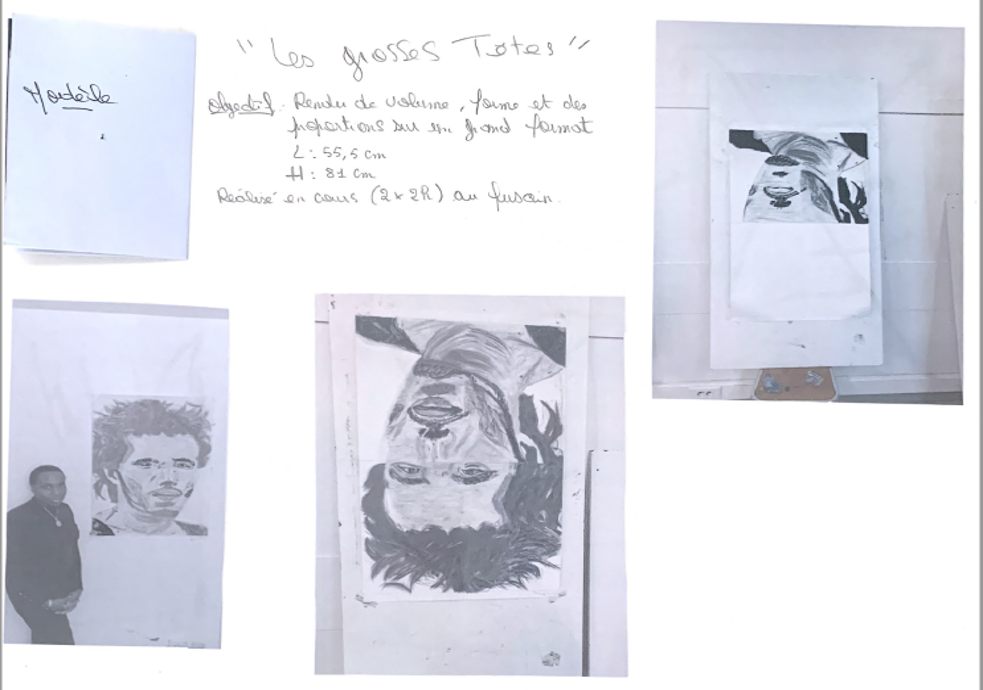 Modèle
" Les grosses Têtes "
Objectif : Rendu de volume, forme et des
proportions sur un grand format
L : 55,5 cm
H : 81 cm
Réalisé en cours (2 x 2h) au fusain.